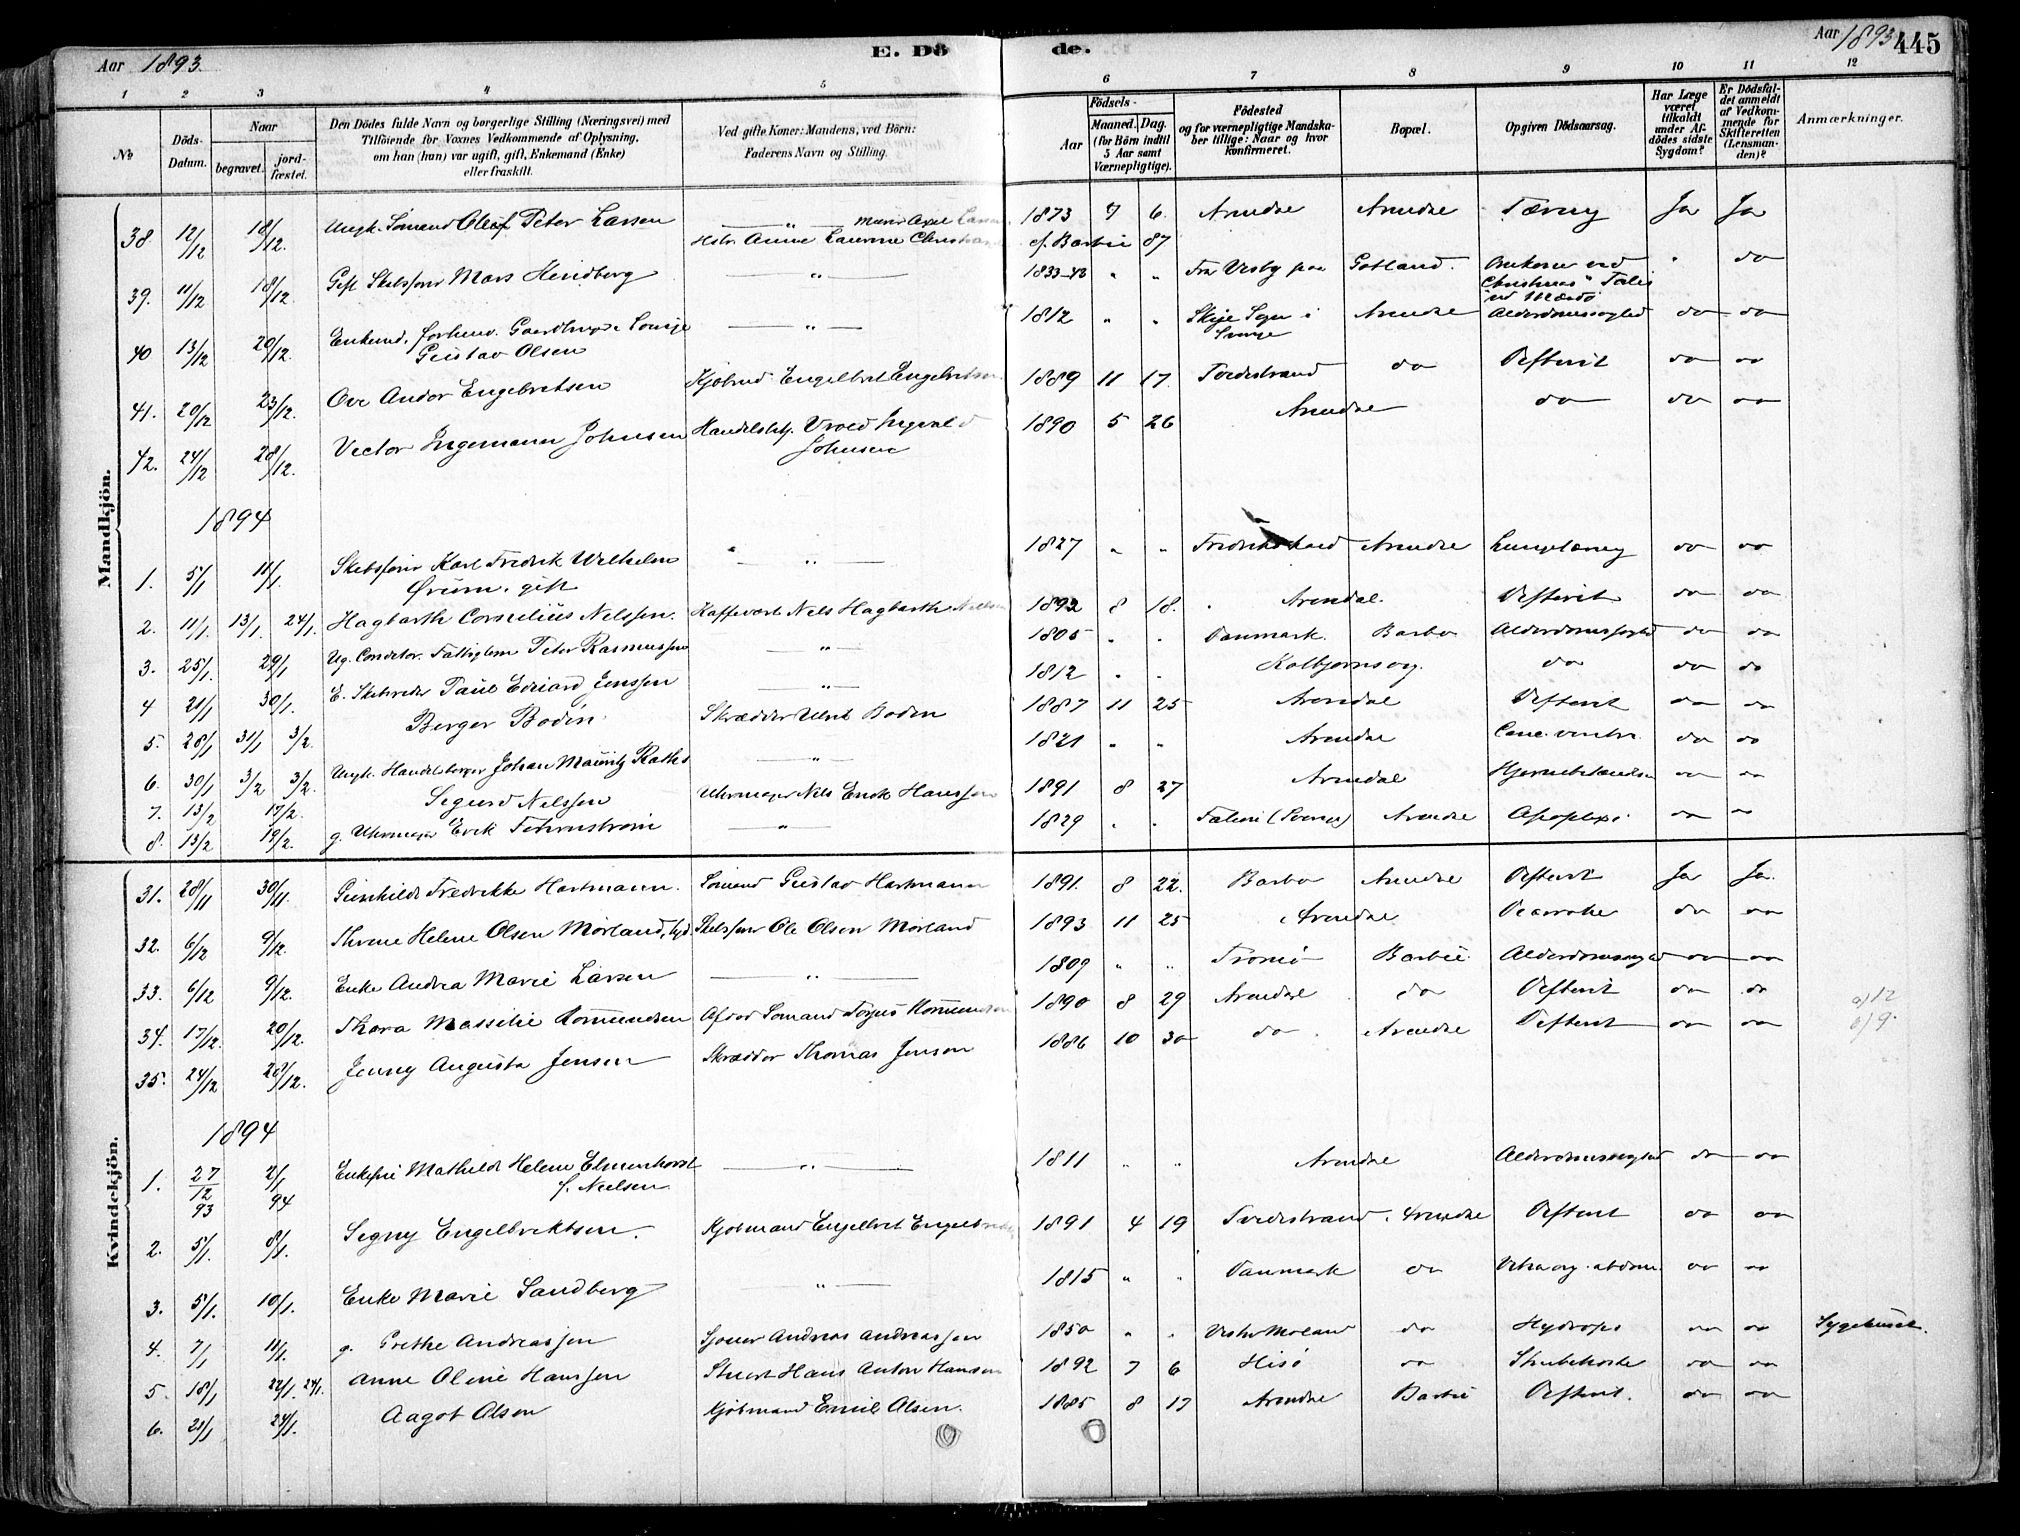 Aar 1893. E. Dö de. Aar 1893 445
1 2 3 4 5 6 7 8 9 10 11 12
№ Döds-Datum. Naar begravet. jord-fæstet. Den Dödes fulde Navn og borgerlige Stilling (Næringsvei) med Tilföiende for Voxnes Vedkommende af Oplysning, om han (hun) var ugift, gift, Enkemand (Enke) eller fraskilt. Ved gifte Koner: Mandens, ved Börn: Faderens Navn og Stilling. Födsels- Aar Maaned. Dag. (for Börn indtil 5 Aar samt Værnepligtige). Födested og for værnepligtige Mandskaber tillige: Naar og hvor konfirmeret. Bopæl. Opgiven Dödsaarsag. Har Læge været tilkaldt under Afdödes sidste Sygdom? Er Dödsfaldet anmeldt af Vedkommende for Skifteretten (Lensmanden)? Anmærkninger.
Mandkjön.
38. 12/12 18/12. Ungk. Sömand Olaf Peter Larsen 1873 7 6. Arendal Arendal Tæring Ja Ja
Anne Laurine 87
39. 11/12 18/12. Gift Skibsförer Mars Heidberg " 1833 " " Fra Visby paa Gotland. " do
40 13/12 20/12. Enkemd. Gustav Olsen " 1812 " " Skeje Sogn i Sverge Arendal Alderdomssvaghed do do
41. 20/12 23/12. Ove Andor Engebretsen Kjöbmd Engelbret Engebretsen 1889 11 17. Tvedestrand do Difterit do do
42. 24/12 28/12. Victor Ingemann Johnsen Ingvald Johnsen 1890 5 26 Arendal do do do
1894
1. 5/1 11/1. Skibsförer Karl Fredrik Wilhelm Örum. gift " 1827 " " Arendal do do
2. 11/1. 13/1. 24/1. Hagbarth Cornelius Nelssen. Kaffevært Nels Hagbarth Nelssen 1892 8 18. Arendal. Difterit do do
3. 25/1. 29/1 Ug. Conditor. Fattiglem Peter Rasmussen " 1805 " " Danmark. Barbo Alderdomssvaghed do do
4 21/1 30/1. E. Paul Edvard Jenssen " 1812 " " Kolbjörnsvig. do do do
5. 28/1 31/1 3/2. Berger Bodin. Skrædder Ulrik Bodin 1887 11 25 Arendal Difterit do do
6. 30/1 3/2 3/2. Ungk. Handelsborger Johan Mauritz Raths " 1821 " " Arendal Canc. ventr. do do
7. 13/2 17/2. Sigurd Nelssen Uhrmager Nils Erik Hanssen 1891 8 27 Arendal do do
8. 13/2 19/2. g. Uhrmager Erik Tehrnström " 1829 " " Falun (Sverge) Arendal Apoplexi do do
Kvindekjön.
31. 28/11 30/11. Gunhilde Fredrikke Hartmann. Sömand Gustav Hartmann 1891. 8 22. Barbo Arendal Difterit Ja Ja.
32. 6/12 9/12. Thrine Helene Olsen Mörland, Skibsförer Ole Olsen Mörland 1893 11 25 Arendal do do
33. 6/12 9/12. Enke Andrea Marie Larsen " 1809 " " Tromö Barbu. Alderdomssvaghed do do
34. 17/12. 20/12. Thora Massilie Romundsen Afdöd Sömand Torjus Romundsen 1890 8 29 Arendal do Difterit do do
35. 24/12 28/12. Jenny Augusta Jensen Skrædder Thomas Jensen 1886 10 30 do. Arendal Difterit do do
a) 12
b) 9.
1894
1. 27/12 93 2/1 94 Enkefru Mathilde Helene Elmenhorst f. Neelsen. " 1811 " " Arendal Alderdomssvaghed do do
2. 5/1. 8/1. Signy Engelbrektsen. Kjöbmand Engelbret 1891 4 19 Tvedestrand. Arendal Difterit do do
3. 5/1. 10/1. Enke Marie Sandberg " 1815 " " Danmark do do do
4. 7/1 11/1. g. Grethe Andreassen Andreas Andreassen 1850 " " Vestre Moland do Hydrops do do Sygehuset.
5. 18/1 22/1. 24/1. Anne Oline Hanssen Stuert Hans Anton Hansen 1892 7 6 Hisö do Strubehoste do do
6. 21/1 24/1. Aagot Olsen Kjöbmand Emil Olsen. 1885 8 17 Arendal Barbu Difterit. do do